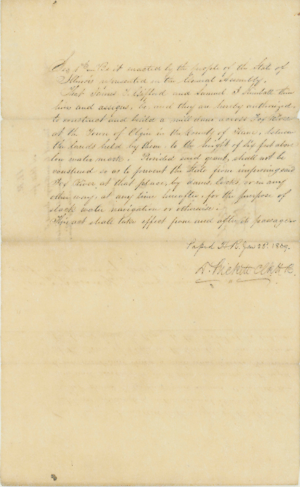 Sec 1st Be it enacted by the people of the State of
Illinois represented in the General Assembly.
That James T. Gifford and Samuel J. Kimball their
heirs and assigns, be, and they are hereby authorized
to construct and build a mill dam across Fox River
at the Town of Elgin in the County of Kane, between
the lands held by them, to the height of six feet above
low water mark. Provided said grant, shall not be
construed so as to prevent the State from improving said
Fox River at that place, by dams, locks, or in any
other way, at any time hereafter, for the purpose of
slack water navigation or otherwise.
This act shall take effect from and after its passage
Passed Ho. Rep. Jany 22d 1839.